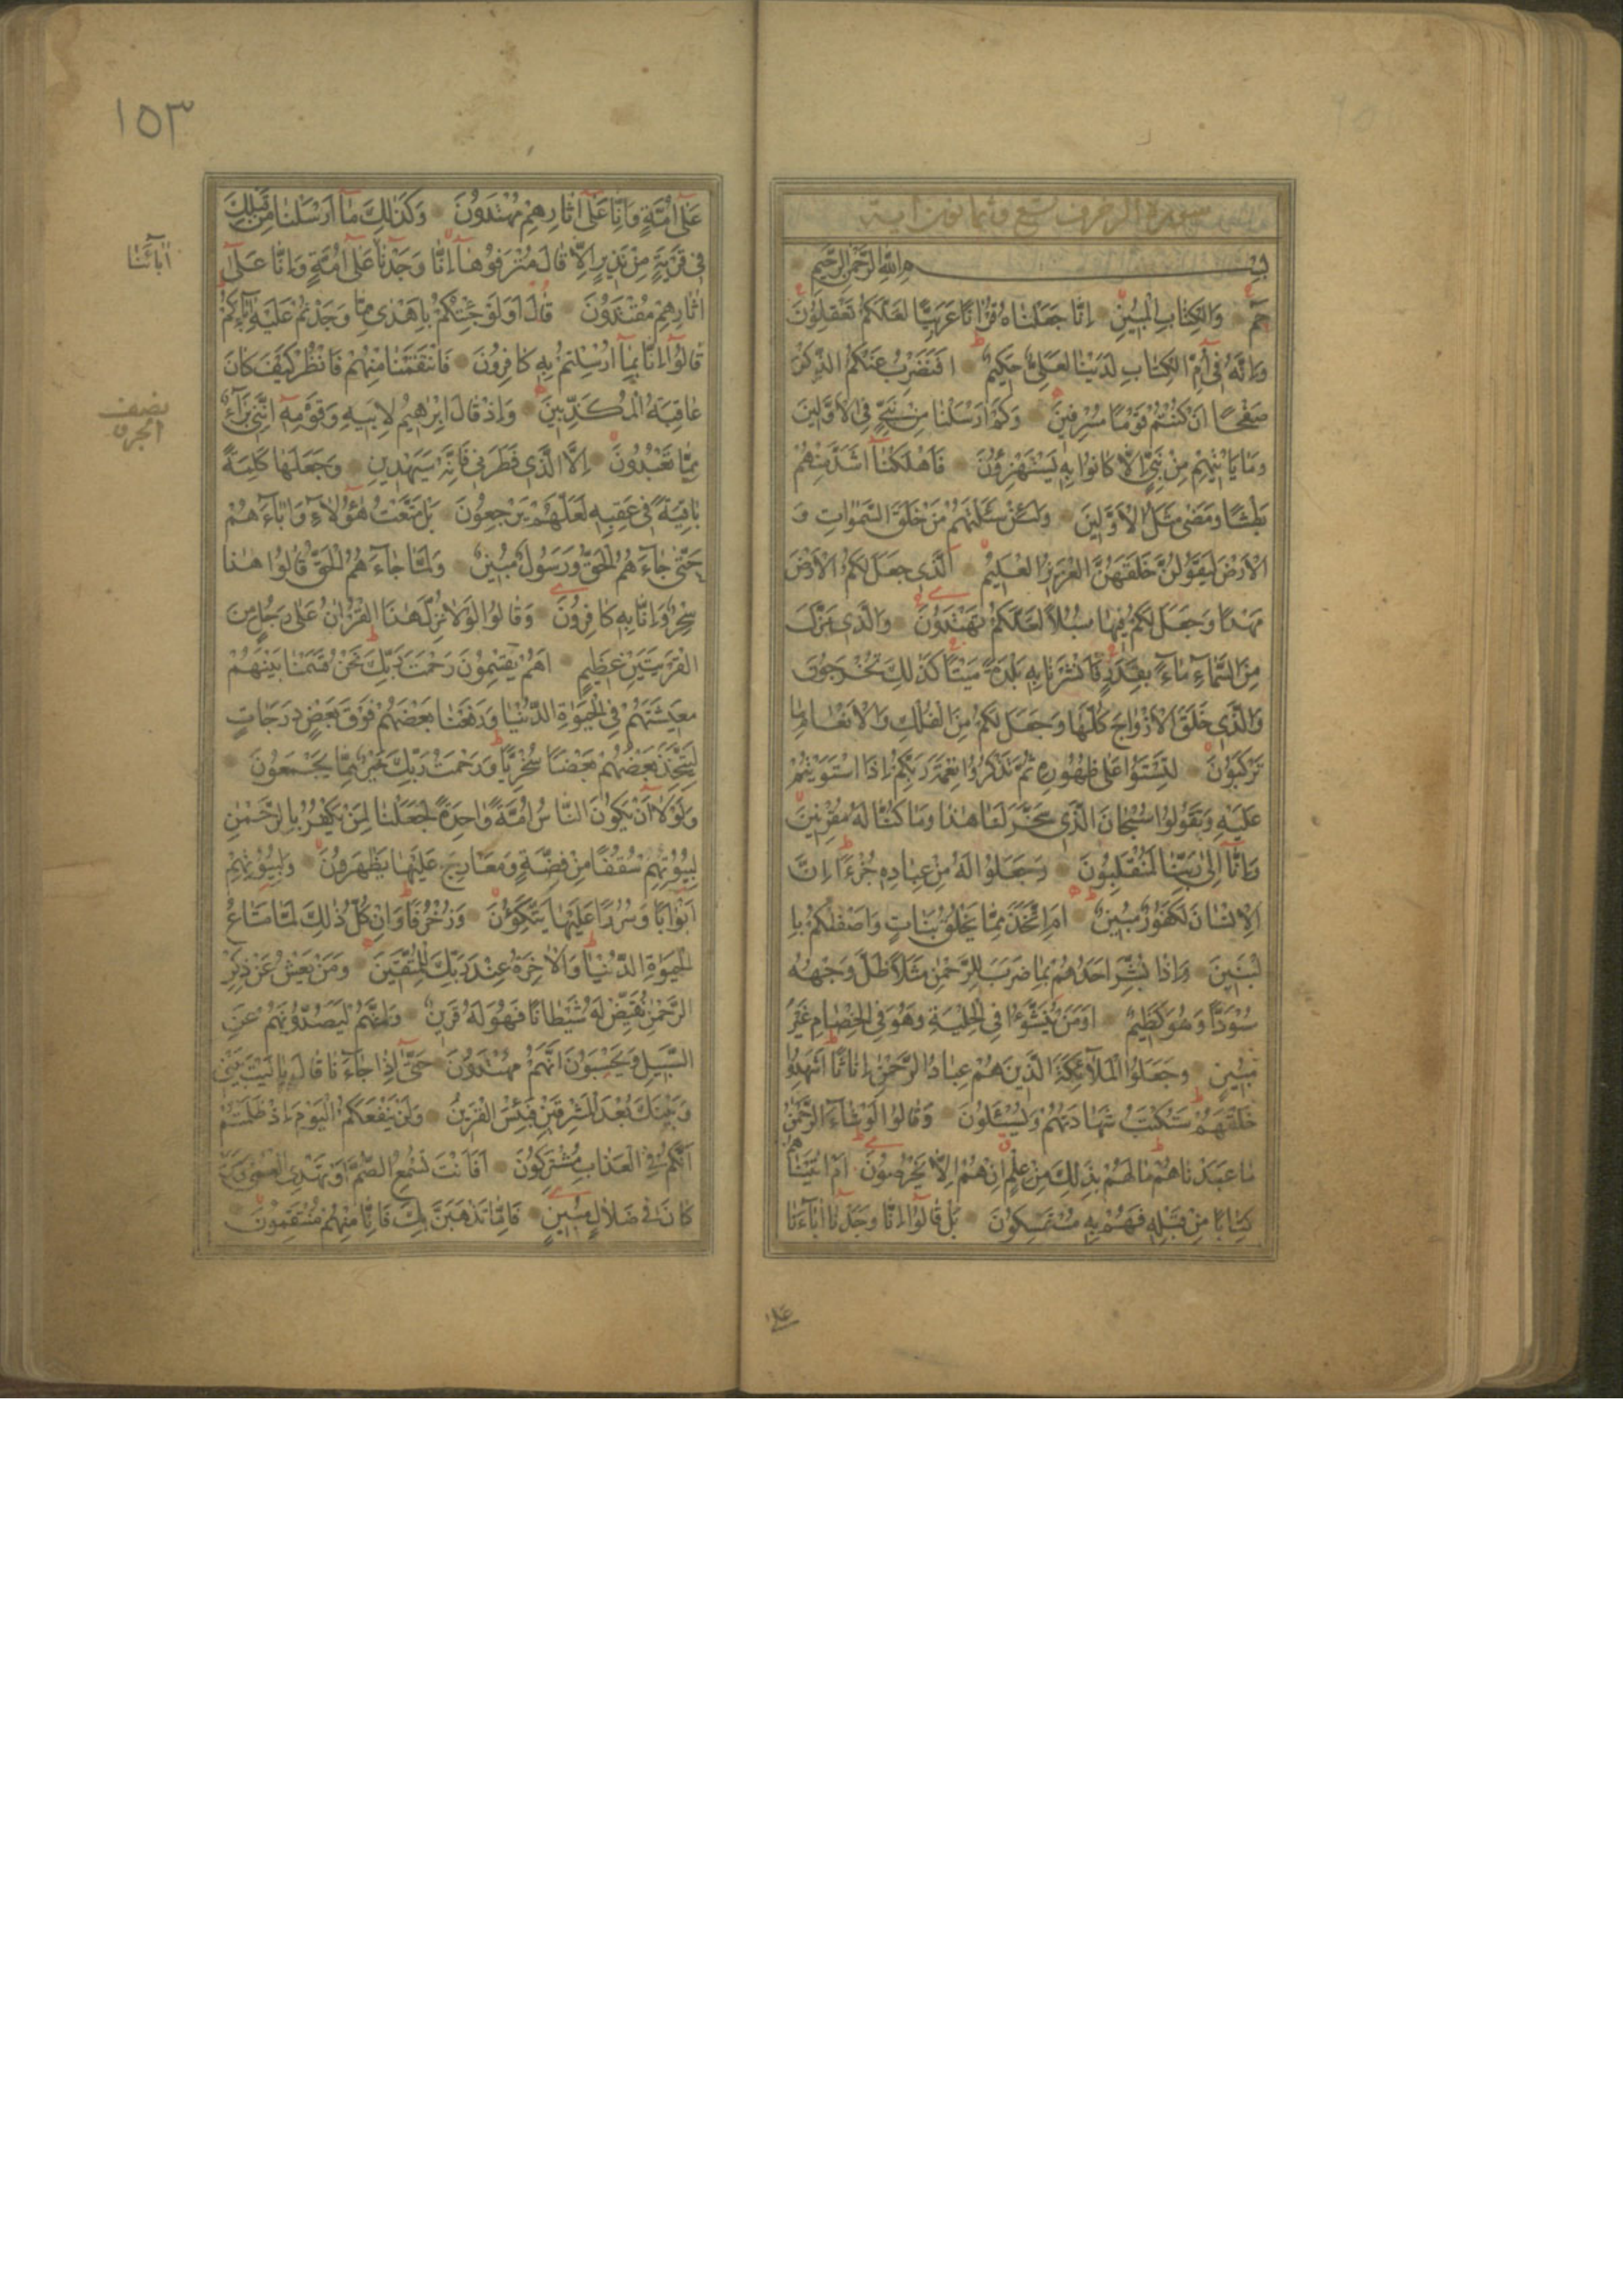 سورة الزخرف تسع وثمانون آية
بِسْمِ اللهِ الرَّحْمٰنِ الرَّحِيمِ
حٰمٓ وَالْكِتَابِ الْمُبِينِ اِنَّا جَعَلْنَاهُ قُرْاٰنًا عَرَبِيًّا لَعَلَّكُمْ تَعْقِلُونَ
وَاِنَّهُ فِٓى اُمِّ الْكِتَابِ لَدَيْنَا لَعَلِىٌّ حَكِيمٌ اَفَنَضْرِبُ عَنْكُمُ الذِّكْرَ
صَفْحًا اَنْ كُنْتُمْ قَوْمًا مُسْرِفِينَ وَكَمْ اَرْسَلْنَا مِنْ نَبِىٍّ فِى الْاَوَّلِينَ
وَمَا يَاْتِيهِمْ مِنْ نَبِىٍّ اِلَّا كَانُوا بِهِ يَسْتَهْزِؤُنَ فَاَهْلَكْنَٓا اَشَدَّ مِنْهُمْ
بَطْشًا وَمَضٰى مَثَلُ الْاَوَّلِينَ وَلَئِنْ سَئَلْتَهُمْ مَنْ خَلَقَ السَّمٰوَاتِ وَ
الْاَرْضَ لَيَقُولُنَّ خَلَقَهُنَّ الْعَزِيزُ الْعَلِيمُ اَلَّذِى جَعَلَ لَكُمُ الْاَرْضَ
مَهْدًا وَجَعَلَ لَكُمْ فِيهَا سُبُلًا لَعَلَّكُمْ تَهْتَدُونَ وَالَّذِى نَزَّلَ
مِنَ السَّمَٓاءِ مَٓاءً بِقَدَرٍ فَاَنْشَرْنَا بِهِ بَلْدَةً مَيْتًا كَذٰلِكَ تُخْرَجُونَ
وَالَّذِى خَلَقَ الْاَزْوَاجَ كُلَّهَا وَجَعَلَ لَكُمْ مِنَ الْفُلْكِ وَالْاَنْعَامِ مَا
تَرْكَبُونَ لِتَسْتَوُا عَلٰى ظُهُورِهِ ثُمَّ تَذْكُرُوا نِعْمَةَ رَبِّكُمْ اِذَا اسْتَوَيْتُمْ
عَلَيْهِ وَتَقُولُوا سُبْحَانَ الَّذِى سَخَّرَ لَنَا هٰذَا وَمَا كُنَّا لَهُ مُقْرِنِينَ
وَاِنَّٓا اِلٰى رَبِّنَا لَمُنْقَلِبُونَ وَجَعَلُوا لَهُ مِنْ عِبَادِهِ جُزْءًا اِنَّ
الْاِنْسَانَ لَكَفُورٌ مُبِينٌ اَمِ اتَّخَذَ مِمَّا يَخْلُقُ بَنَاتٍ وَاَصْفٰيكُمْ بِا
لْبَنِينَ وَاِذَا بُشِّرَ اَحَدُهُمْ بِمَا ضَرَبَ لِلرَّحْمٰنِ مَثَلًا ظَلَّ وَجْهُهُ
مُسْوَدًّا وَهُوَ كَظِيمٌ اَوَمَنْ يُنَشَّؤُا فِى الْحِلْيَةِ وَهُوَ فِى الْخِصَامِ غَيْرُ
مُبِينٍ وَجَعَلُوا الْمَلٰٓئِكَةَ الَّذِينَ هُمْ عِبَادُ الرَّحْمٰنِ اِنَاثًا اَشَهِدُوا
خَلْقَهُمْ سَتُكْتَبُ شَهَادَتُهُمْ وَيُسْئَلُونَ وَقَالُوا لَوْ شَٓاءَ الرَّحْمٰنُ
مَا عَبَدْنَاهُمْ مَا لَهُمْ بِذٰلِكَ مِنْ عِلْمٍ اِنْ هُمْ اِلَّا يَخْرُصُونَ اَمْ اٰتَيْنَاهُمْ
كِتَابًا مِنْ قَبْلِهِ فَهُمْ بِهِ مُسْتَمْسِكُونَ بَلْ قَالُٓوا اِنَّا وَجَدْنَٓا اٰبَٓاءَنَا
على
١٥٣
عَلٰٓى اُمَّةٍ وَاِنَّا عَلٰٓى اٰثَارِهِمْ مُهْتَدُونَ وَكَذٰلِكَ مَٓا اَرْسَلْنَا مِنْ قَبْلِكَ
فِى قَرْيَةٍ مِنْ نَذِيرٍ اِلَّا قَالَ مُتْرَفُوهَٓا اِنَّا وَجَدْنَا عَلٰٓى اُمَّةٍ وَاِنَّا عَلٰٓى
اٰبَٓائَنَا
اٰثَارِهِمْ مُقْتَدُونَ قَالَ اَوَلَوْ جِئْتُكُمْ بِاَهْدٰى مِمَّا وَجَدْتُمْ عَلَيْهِ اٰبَٓاءَكُمْ
قَالُٓوا اِنَّا بِمَٓا اُرْسِلْتُمْ بِهِ كَافِرُونَ فَانْتَقَمْنَا مِنْهُمْ فَانْظُرْ كَيْفَ كَانَ
عَاقِبَةُ الْمُكَذِّبِينَ وَاِذْ قَالَ اِبْرٰهِيمُ لِاَبِيهِ وَقَوْمِهِٓ اِنَّنِى بَرَٓاءٌ
نصف
الجزء
مِمَّا تَعْبُدُونَ اِلَّا الَّذِى فَطَرَنِى فَاِنَّهُ سَيَهْدِينِ وَجَعَلَهَا كَلِمَةً
بَاقِيَةً فِى عَقِبِهِ لَعَلَّهُمْ يَرْجِعُونَ بَلْ مَتَّعْتُ هٰٓؤُلَٓاءِ وَاٰبَٓاءَهُمْ
حَتّٰى جَٓاءَهُمُ الْحَقُّ وَرَسُولٌ مُبِينٌ وَلَمَّا جَٓاءَهُمُ الْحَقُّ قَالُوا هٰذَا
سِحْرٌ وَاِنَّا بِهِ كَافِرُونَ وَقَالُوا لَوْلَا نُزِّلَ هٰذَا الْقُرْاٰنُ عَلٰى رَجُلٍ مِنَ
الْقَرْيَتَيْنِ عَظِيمٍ اَهُمْ يَقْسِمُونَ رَحْمَتَ رَبِّكَ نَحْنُ قَسَمْنَا بَيْنَهُمْ
مَعِيشَتَهُمْ فِى الْحَيٰوةِ الدُّنْيَا وَرَفَعْنَا بَعْضَهُمْ فَوْقَ بَعْضٍ دَرَجَاتٍ
لِيَتَّخِذَ بَعْضُهُمْ بَعْضًا سُخْرِيًّا وَرَحْمَتُ رَبِّكَ خَيْرٌ مِمَّا يَجْمَعُونَ
وَلَوْلَٓا اَنْ يَكُونَ النَّاسُ اُمَّةً وَاحِدَةً لَجَعَلْنَا لِمَنْ يَكْفُرُ بِالرَّحْمٰنِ
لِبُيُوتِهِمْ سُقُفًا مِنْ فِضَّةٍ وَمَعَارِجَ عَلَيْهَا يَظْهَرُونَ وَلِبُيُوتِهِمْ
اَبْوَابًا وَسُرُرًا عَلَيْهَا يَتَّكِؤُنَ وَزُخْرُفًا وَاِنْ كُلُّ ذٰلِكَ لَمَّا مَتَاعُ
الْحَيٰوةِ الدُّنْيَا وَالْاٰخِرَةُ عِنْدَ رَبِّكَ لِلْمُتَّقِينَ وَمَنْ يَعْشُ عَنْ ذِكْرِ
الرَّحْمٰنِ نُقَيِّضْ لَهُ شَيْطَانًا فَهُوَ لَهُ قَرِينٌ وَاِنَّهُمْ لَيَصُدُّونَهُمْ عَنِ
السَّبِيلِ وَيَحْسَبُونَ اَنَّهُمْ مُهْتَدُونَ حَتّٰٓى اِذَا جَٓاءَنَا قَالَ يَا لَيْتَ بَيْنِى
وَبَيْنَكَ بُعْدَ الْمَشْرِقَيْنِ فَبِئْسَ الْقَرِينُ وَلَنْ يَنْفَعَكُمُ الْيَوْمَ اِذْ ظَلَمْتُمْ
اَنَّكُمْ فِى الْعَذَابِ مُشْتَرِكُونَ اَفَاَنْتَ تُسْمِعُ الصُّمَّ اَوْ تَهْدِى الْعُمْىَ وَمَنْ
كَانَ فِى ضَلَالٍ مُبِينٍ فَاِمَّا نَذْهَبَنَّ بِكَ فَاِنَّا مِنْهُمْ مُنْتَقِمُونَ